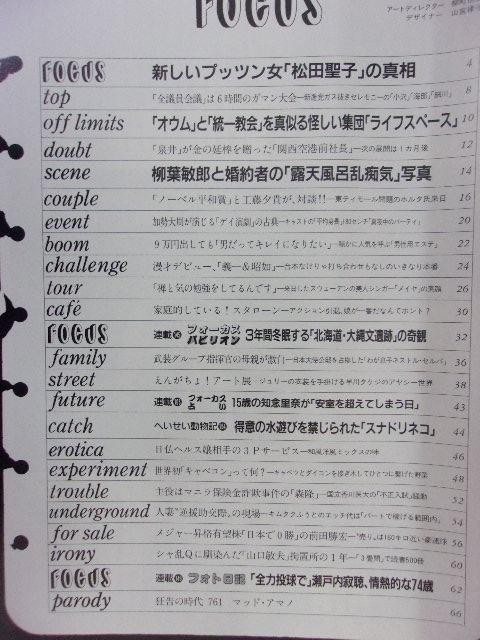 FOCUS
アートディレクター
デザイナー
FOCUS 新しいプッツン女「松田聖子」の真相 4
top 「全議員会議」は6時間のガマン大会 8
off limits 「オウム」と「統一教会」を真似る怪しい集団「ライフスペース」 10
doubt 「泉井」が金の延棒を贈った「関西空港前社長」―次の展開は1カ月後 12
scene 柳葉敏郎と婚約者の「露天風呂乱痴気」写真 14
couple 「ノーベル平和賞」と工藤夕貴が、対談!!―東ティモール問題のホルタ氏来日 16
event 加勢大周が演じる「ゲイ演劇」の古典―キャストの「平均身長」180センチ「真夜中のパーティ」 20
boom 9万円出しても「男だってキレイになりたい」―静かに人気を呼ぶ「男性用エステ」 22
challenge 漫才デビュー、「義一&昭如」―台本なけりゃ打ち合わせもなしのいきなり本番 24
tour 「禅と気の勉強をしてるんです」―来日したスウェーデンの美人シンガー「メイヤ」の素顔 26
café 家庭的している!スタローン―アクション引退、娘が一番だなんてホント? 30
FOCUS 連載 フォーカスパビリオン 3年間冬眠する「北海道・大縄文遺跡」の奇観 32
family 武装グループ指揮官の母親が激白―日本大使公邸を占拠した「わが息子ネストル・セルパ」 36
street えんがちょ!アート展―ジュリーの衣装を手掛ける早川タケジのアヤシー世界 38
future 連載 フォーカス占い 15歳の知念里奈が「安室を超えてしまう日」 43
catch へいせい動物記 得意の水遊びを禁じられた「スナドリネコ」 44
erotica 日仏ヘルス嬢相手の3Pサービス―和風洋風ミックスの味 46
experiment 世界初「キャベコン」って何?―キャベツとダイコンを接ぎ木してひとつに繋げた野菜 48
trouble 主役はマニラ保険金詐欺事件の「森隆」―国立香川医大の「不正入試」騒動 52
underground 人妻“逆援助交際”の現場―キムタクふうとのエッチ代は「パートで稼げる範囲内」 54
for sale メジャー昇格有望株「日本で0勝」の前田勝宏―「売り」は160キロ近い豪速球 56
irony シャ乱Qに馴染んだ「山口敏夫」拘置所の1年―「3畳間」で読書500冊 60
FOCUS 連載 フォト日記 「全力投球で」瀬戸内寂聴、情熱的な74歳 62
parody 狂告の時代 761 マッド・アマノ 66